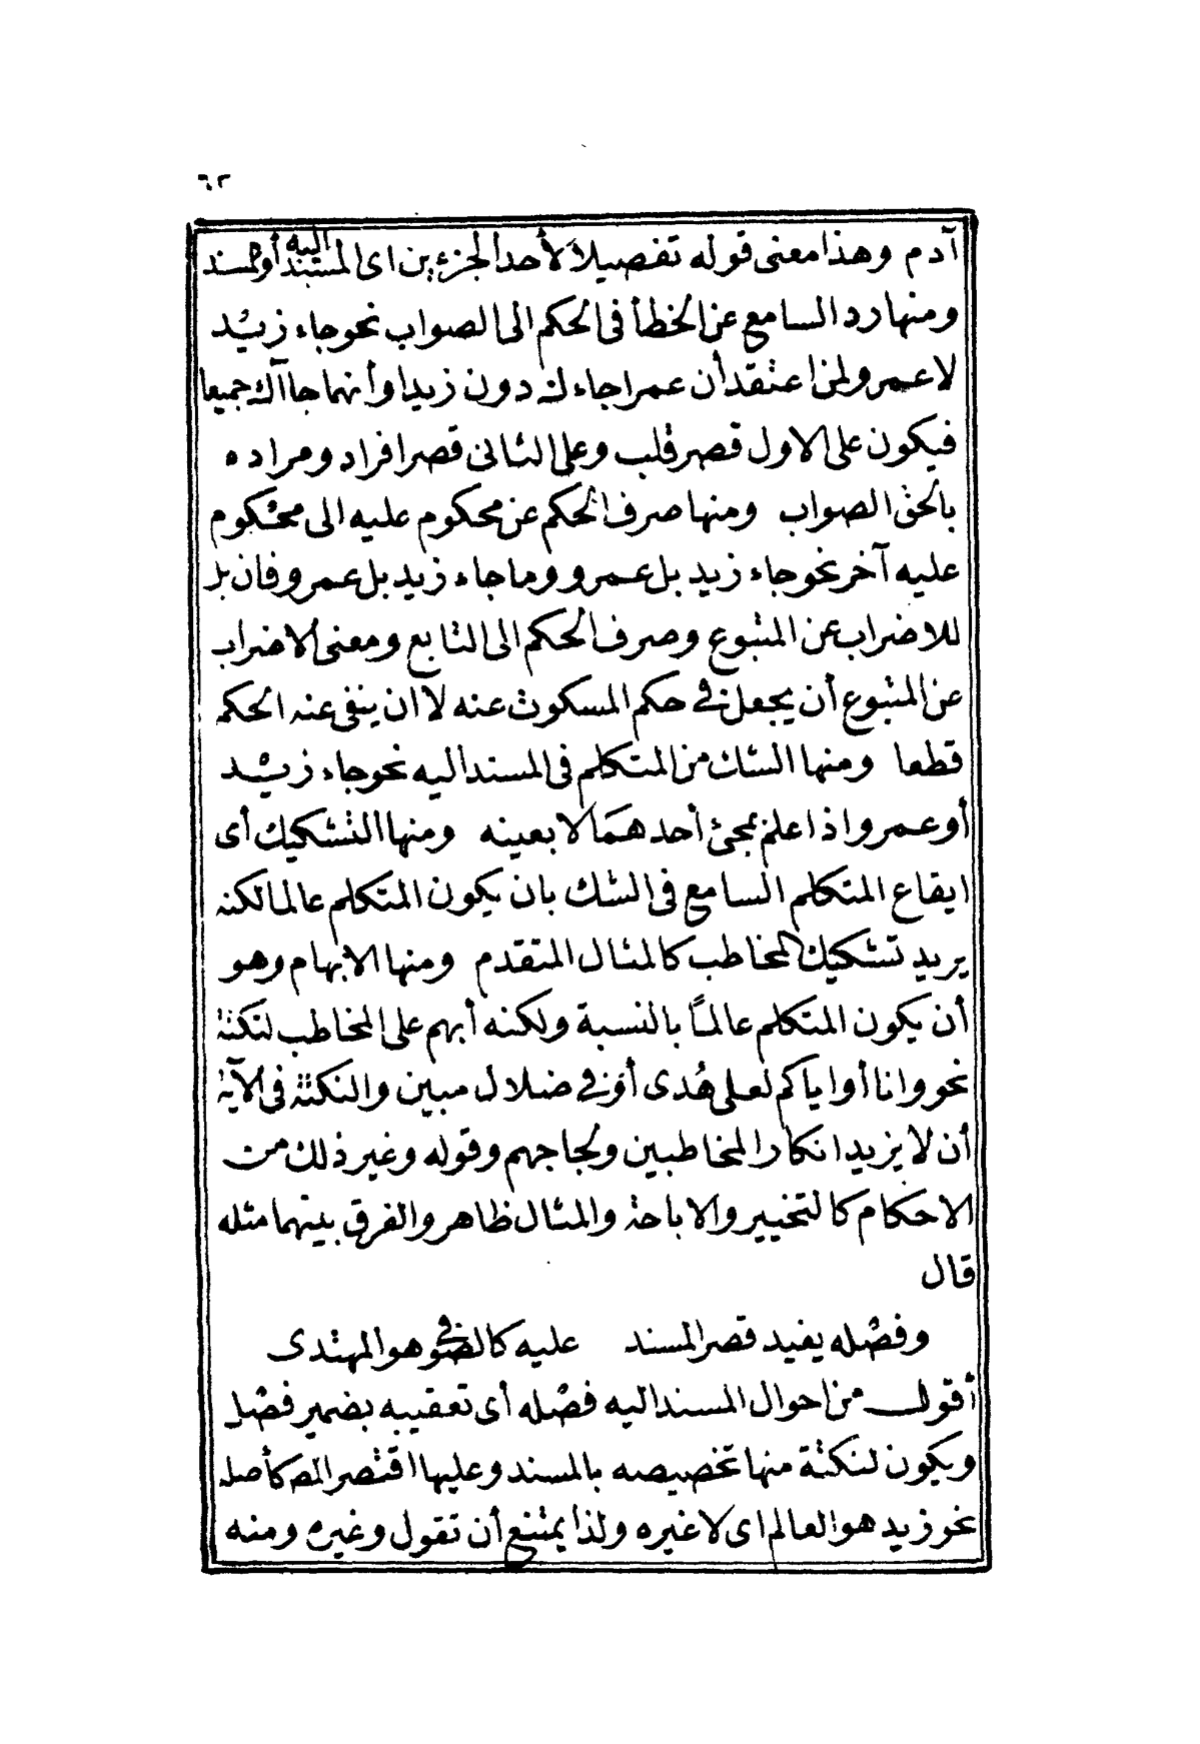 ٦٢
آدم وهذا معنى قوله تفصيلاً لأحد الجزءين اى المسند اليه أو المسند
ومنها رد السامع عن الخطأ فى الحكم الى الصواب نحو جاء زيد
لا عمرو لمن اعتقد أن عمرا جاءك دون زيد او أنهما جاآك جميعا
فيكون على الاول قصر قلب وعلى الثانى قصر افراد ومراده
بالحق الصواب ومنها صرف الحكم عن محكوم عليه الى محكوم
عليه آخر نحو جاء زيد بل عمرو وما جاء زيد بل عمرو فان بل
للاضراب عن المتبوع وصرف الحكم الى التابع ومعنى الاضراب
عن المتبوع أن يجعل فى حكم المسكوت عنه لا ان ينفى عنه الحكم
قطعا ومنها الشك من المتكلم فى المسند اليه نحو جاء زيد
أو عمرو اذا علم بمجئ أحدهما لا بعينه ومنها التشكيك أى
ايقاع المتكلم السامع فى الشك بان يكون المتكلم عالما لكنه
يريد تشكيك المخاطب كالمثال المتقدم ومنها الابهام وهو
أن يكون المتكلم عالمًا بالنسبة ولكنه أبهم على المخاطب لنكتة
نحو وانا أو اياكم لعلى هُدى أو فى ضلال مبين والنكتة فى الآية
أن لا يزيد انكار المخاطبين ولجاجهم وقوله وغير ذلك من
الاحكام كالتخيير والاباحة والمثال ظاهر والفرق بينهما مثله
قال
وفصله يفيد قصر المسند عليه كالصوفى هو المهتدى
أقول من احوال المسند اليه فصله أى تعقيبه بضمير فصل
ويكون لنكتة منها تخصيصه بالمسند وعليها اقتصر المص كأصله
نحو زيد هو العالم اى لا غيره ولذا يمتنع أن تقول وغيره ومنه